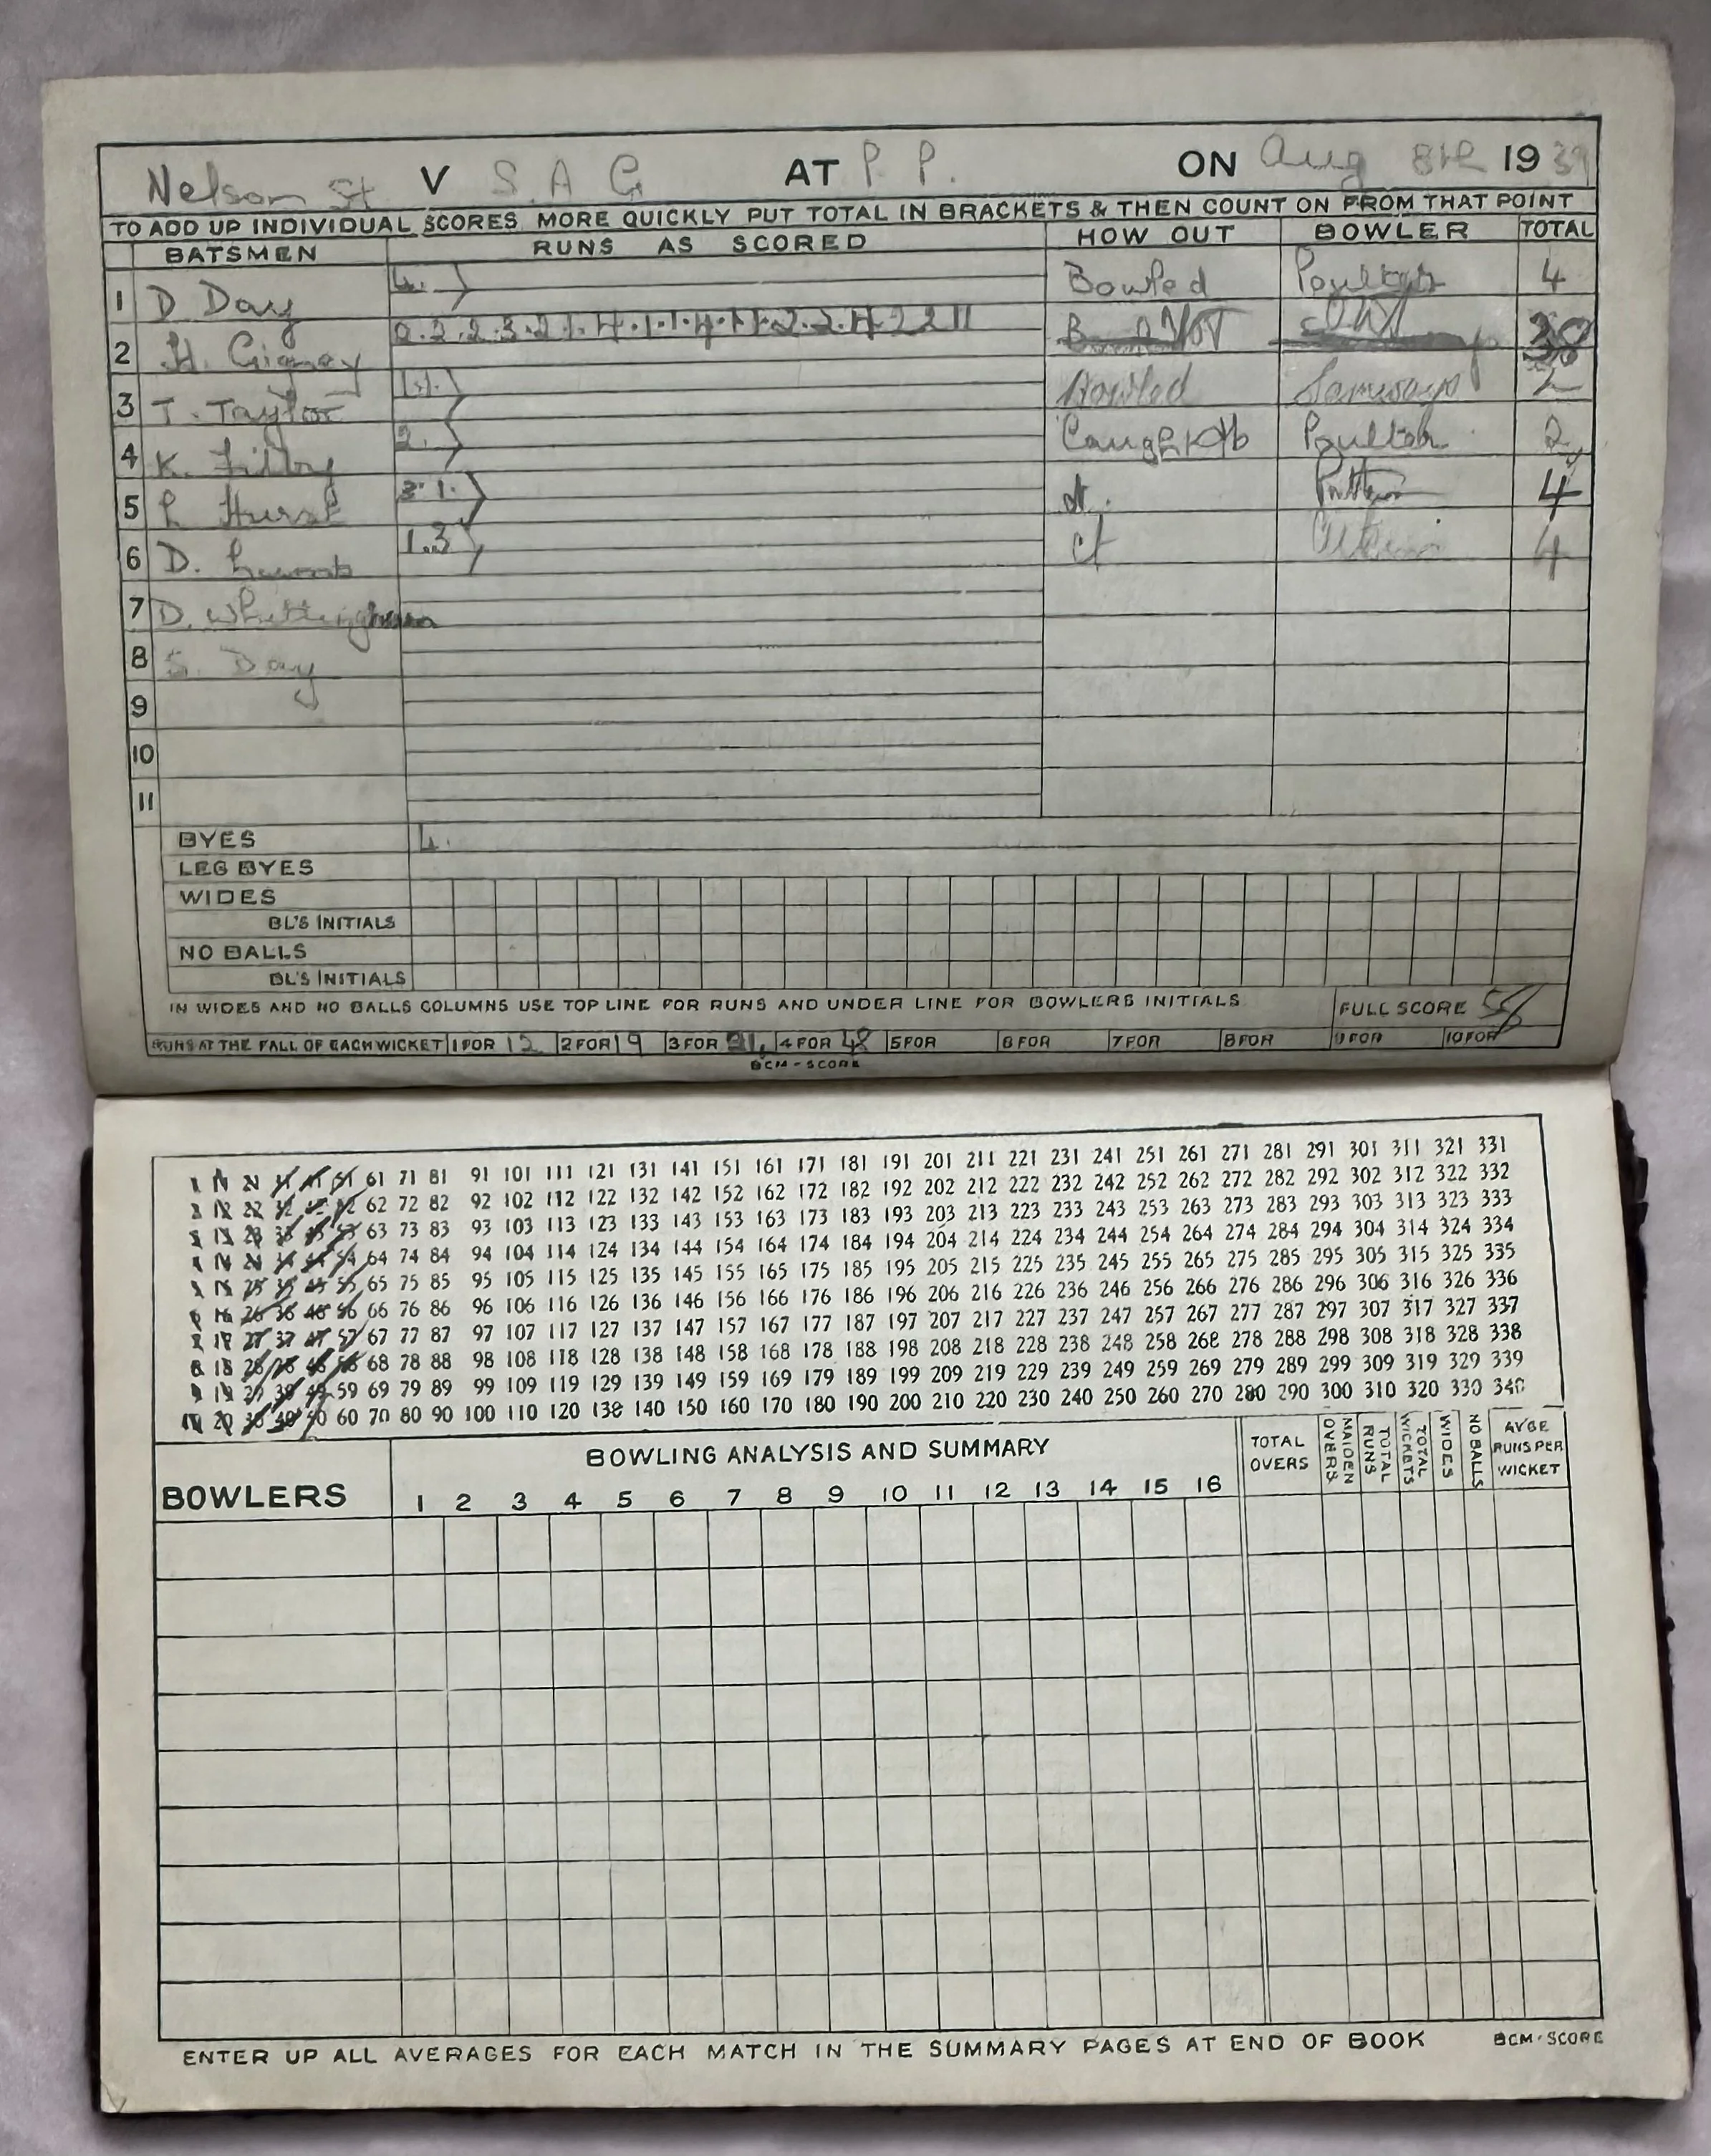 Nelson St V S. A G AT P. P. ON Aug 8th 1939
TO ADD UP INDIVIDUAL SCORES MORE QUICKLY PUT TOTAL IN BRACKETS & THEN COUNT ON FROM THAT POINT
BATSMEN RUNS AS SCORED HOW OUT BOWLER TOTAL
1 D. Day 4. ) Bowled Poulter 4
2 H. NOT OUT
3 T. Taylor 1.1. ) Bowled Samways 2
4 K. 2. ) Caught Poulter 2
5 L Hurst 3. 1. ) st. 4
6 D. Lamb 1.3 ) ct 4
7 D. Whittingham
8 S. Day
9
10
11
BYES 4.
LEG BYES
WIDES
BL'S INITIALS
NO BALLS
BL'S INITIALS
IN WIDES AND NO BALLS COLUMNS USE TOP LINE FOR RUNS AND UNDER LINE FOR BOWLERS INITIALS FULL SCORE 58
RUNS AT THE FALL OF EACH WICKET 1 FOR 12 2 FOR 19 3 FOR 21. 4 FOR 48 5 FOR 6 FOR 7 FOR 8 FOR 9 FOR 10 FOR
BCM-SCORE
1 11 21 31 41 51 61 71 81 91 101 111 121 131 141 151 161 171 181 191 201 211 221 231 241 251 261 271 281 291 301 311 321 331
2 12 22 32 42 52 62 72 82 92 102 112 122 132 142 152 162 172 182 192 202 212 222 232 242 252 262 272 282 292 302 312 322 332
3 13 23 33 43 53 63 73 83 93 103 113 123 133 143 153 163 173 183 193 203 213 223 233 243 253 263 273 283 293 303 313 323 333
4 14 24 34 44 54 64 74 84 94 104 114 124 134 144 154 164 174 184 194 204 214 224 234 244 254 264 274 284 294 304 314 324 334
5 15 25 35 45 55 65 75 85 95 105 115 125 135 145 155 165 175 185 195 205 215 225 235 245 255 265 275 285 295 305 315 325 335
6 16 26 36 46 56 66 76 86 96 106 116 126 136 146 156 166 176 186 196 206 216 226 236 246 256 266 276 286 296 306 316 326 336
7 17 27 37 47 57 67 77 87 97 107 117 127 137 147 157 167 177 187 197 207 217 227 237 247 257 267 277 287 297 307 317 327 337
8 18 28 38 48 58 68 78 88 98 108 118 128 138 148 158 168 178 188 198 208 218 228 238 248 258 268 278 288 298 308 318 328 338
9 19 29 39 49 59 69 79 89 99 109 119 129 139 149 159 169 179 189 199 209 219 229 239 249 259 269 279 289 299 309 319 329 339
10 20 30 40 50 60 70 80 90 100 110 120 130 140 150 160 170 180 190 200 210 220 230 240 250 260 270 280 290 300 310 320 330 340
BOWLERS BOWLING ANALYSIS AND SUMMARY TOTAL OVERS MAIDEN OVERS TOTAL RUNS TOTAL WICKETS WIDES NO BALLS AVGE RUNS PER WICKET
1 2 3 4 5 6 7 8 9 10 11 12 13 14 15 16
ENTER UP ALL AVERAGES FOR EACH MATCH IN THE SUMMARY PAGES AT END OF BOOK BCM-SCORE